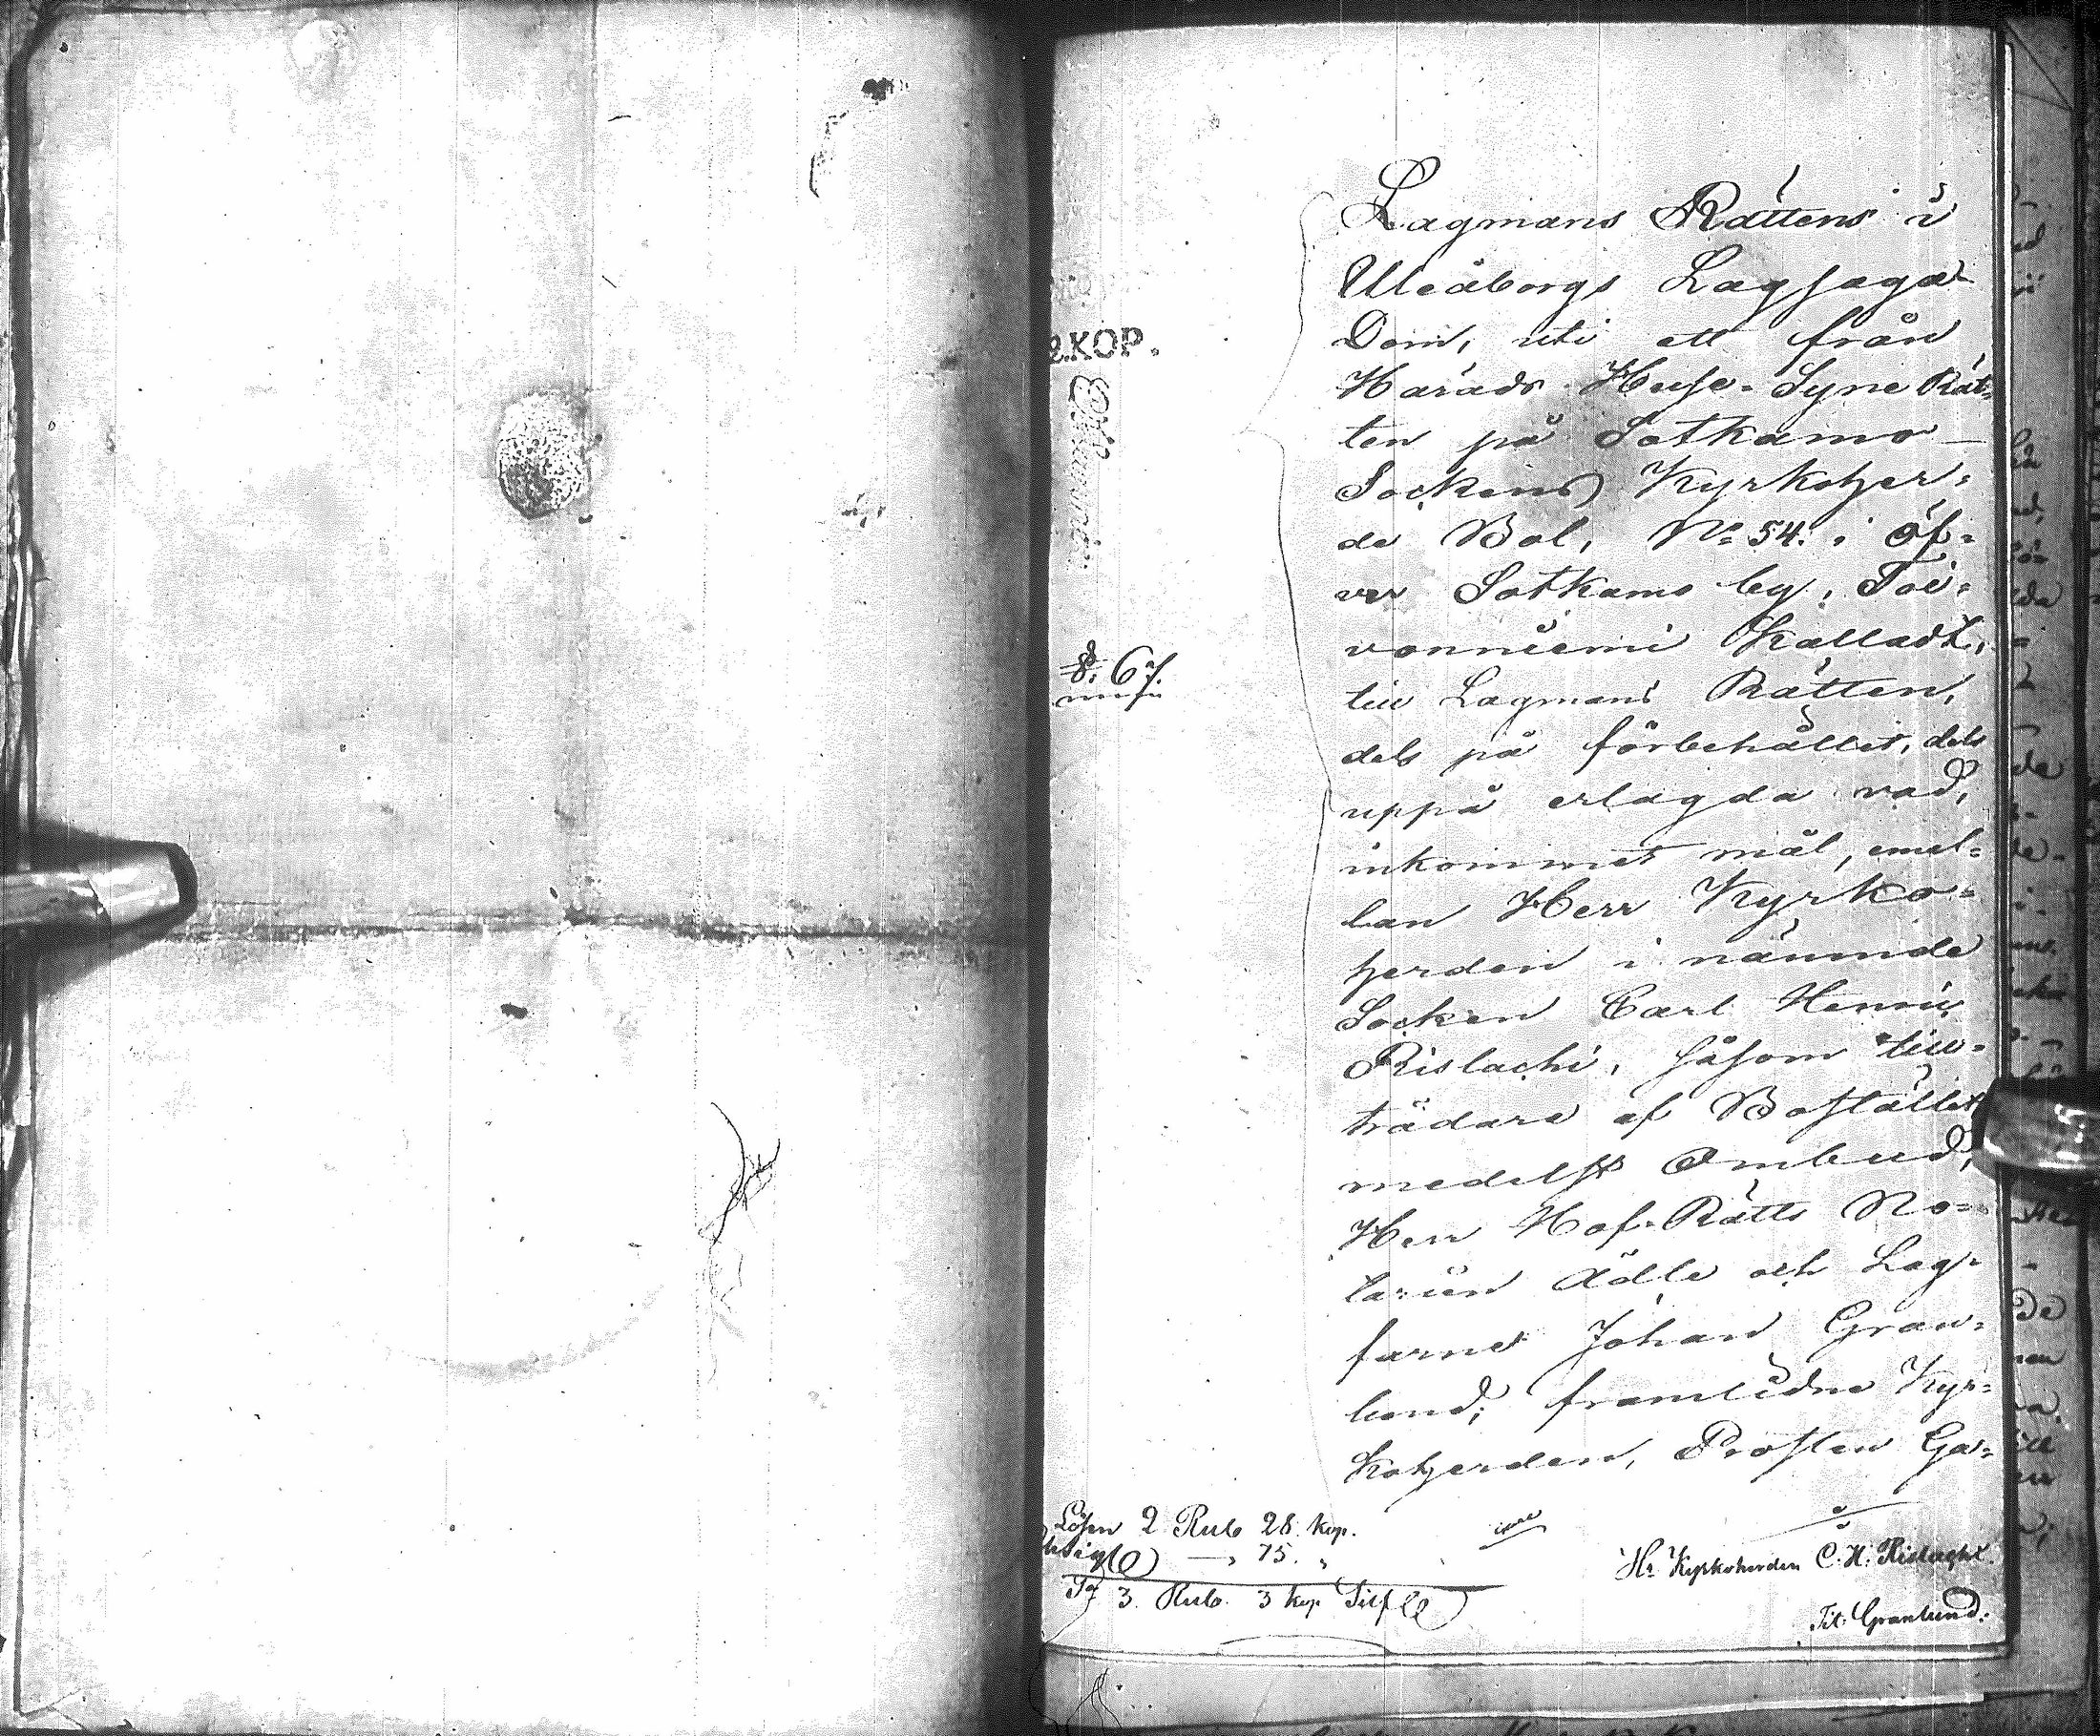 Lagmans Rättens i
Uleåborgs Lagsaga
Dom, uti ett från
Härads Huse-Syne Rät=
ten på Sotkamo
Sockens Kyrkoher=
de Bol, No 54. i Öf=
ver Sotkamo by, Toi=
vonniemi kalladt,
till Lagmans Rätten,
dels på förbehållit, dels
uppå erlagda vad,
inkommet mål, emel=
lan Herr Kyrko=
herden i nämnde
Socken Carl Henric
Rislachi, såsom till=
trädare af Bostället
medelst Ombud,
Herr Hof-Rätts No=
tarien Ädle och Lag=
farne Johan Gran=
lund; framlidne Kyr=
koherden, Prosten Ga=
2.KOP.
§. 67.
Lösen 2 Rub 28. kop.
75.
3. Rub. 3 kop Silf
Hr Kyrkoherden C. H. Rislachi.
Tit: Granlund.